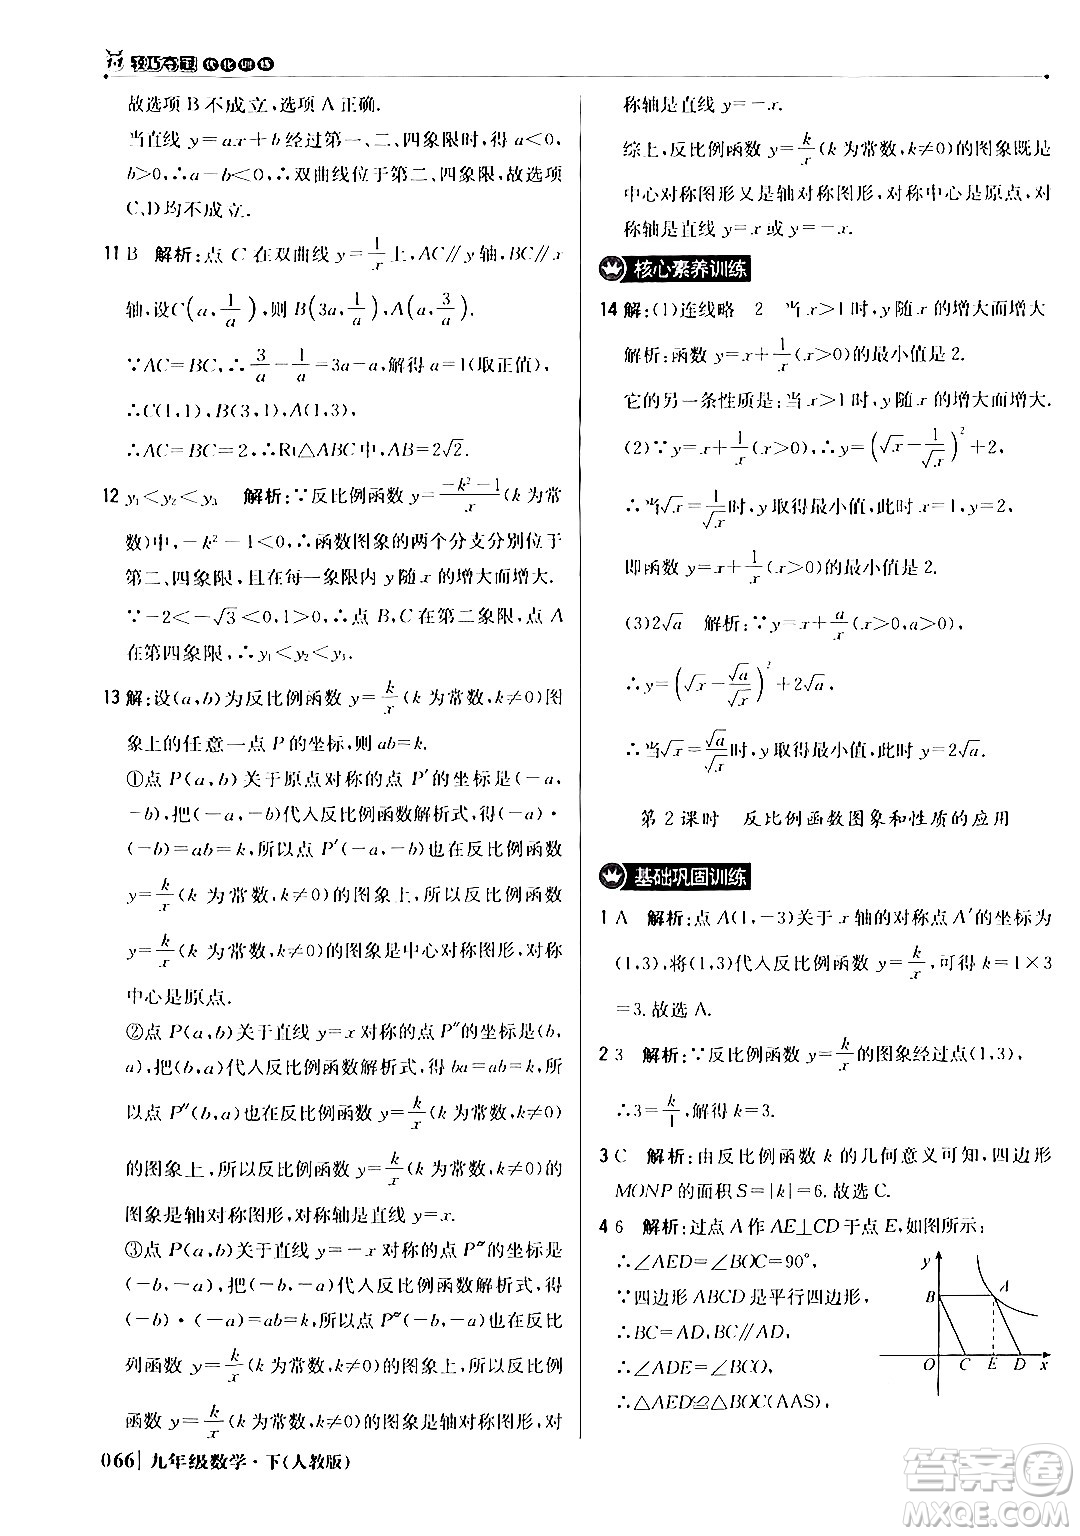 轻巧夺冠 优化训练
故选项 B 不成立,选项 A 正确.
当直线 y=ax+b 经过第一、二、四象限时,得 a<0,
b>0,∴a-b<0,∴双曲线位于第二、四象限,故选项
C,D 均不成立.
11 B 解析:点 C 在双曲线 y=1/x 上,AC∥y 轴,BC∥x
轴,设C(a,1/a),则 B(3a,1/a),A(a,3/a).
∵AC=BC,∴3/a-1/a=3a-a,解得 a=1(取正值),
∴C(1,1),B(3,1),A(1,3),
∴AC=BC=2,∴Rt△ABC 中,AB=2√2.
12 y₁<y₂<y₃ 解析:∵反比例函数 y=(-k²-1)/x(k 为常
数)中,-k²-1<0,∴函数图象的两个分支分别位于
第二、四象限,且在每一象限内 y 随 x 的增大而增大.
∵-2<-√3<0,1>0,∴点 B,C 在第二象限,点 A
在第四象限,∴y₁<y₂<y₃.
13 解:设(a,b)为反比例函数 y=k/x(k 为常数,k≠0)图
象上的任意一点 P 的坐标,则 ab=k.
①点 P(a,b)关于原点对称的点 P′的坐标是(-a,
-b),把(-a,-b)代入反比例函数解析式,得(-a)·
(-b)=ab=k,所以点 P′(-a,-b)也在反比例函数
y=k/x(k 为常数,k≠0)的图象上,所以反比例函数
y=k/x(k 为常数,k≠0)的图象是中心对称图形,对称
中心是原点.
②点 P(a,b)关于直线 y=x 对称的点 P″的坐标是(b,
a),把(b,a)代入反比例函数解析式,得 ba=ab=k,所
以点 P″(b,a)也在反比例函数 y=k/x(k 为常数,k≠0)
的图象上,所以反比例函数 y=k/x(k 为常数,k≠0)的
图象是轴对称图形,对称轴是直线 y=x.
③点 P(a,b)关于直线 y=-x 对称的点 P‴的坐标是
(-b,-a),把(-b,-a)代入反比例函数解析式,得
(-b)·(-a)=ab=k,所以点 P‴(-b,-a)也在反比
例函数 y=k/x(k 为常数,k≠0)的图象上,所以反比例
函数 y=k/x(k 为常数,k≠0)的图象是轴对称图形,对
066 九年级数学·下(人教版)
称轴是直线 y=-x.
综上,反比例函数 y=k/x(k 为常数,k≠0)的图象既是
中心对称图形又是轴对称图形,对称中心是原点,对
称轴是直线 y=x 或 y=-x.
核心素养训练
14 解:(1)连线略 2 当 x>1 时,y 随 x 的增大而增大
解析:函数 y=x+1/x(x>0)的最小值是 2.
它的另一条性质是:当 x>1 时,y 随 x 的增大而增大.
(2)∵y=x+1/x(x>0),∴y=(√x-1/√x)²+2,
∴当√x=1/√x时,y 取得最小值,此时 x=1,y=2,
即函数 y=x+1/x(x>0)的最小值是 2.
(3)2√a 解析:∵y=x+a/x(x>0,a>0),
∴y=(√x-√a/√x)²+2√a,
∴当√x=√a/√x时,y 取得最小值,此时 y=2√a.
第 2 课时 反比例函数图象和性质的应用
基础巩固训练
1 A 解析:点 A(1,-3)关于 x 轴的对称点 A′的坐标为
(1,3),将(1,3)代入反比例函数 y=k/x,可得 k=1×3
=3.故选 A.
2 3 解析:∵反比例函数 y=k/x的图象经过点(1,3),
∴3=k/1,解得 k=3.
3 C 解析:由反比例函数 k 的几何意义可知,四边形
MONP 的面积 S=|k|=6.故选 C.
4 6 解析:过点 A 作 AE⊥CD 于点 E,如图所示:
∴∠AED=∠BOC=90°,
∵四边形 ABCD 是平行四边形,
∴BC=AD,BC∥AD,
∴∠ADE=∠BCO,
∴△AED≌△BOC(AAS),
y
B A
O C E D x
答案圈
MXQE.COM